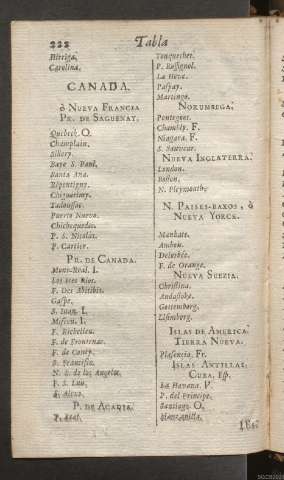 222 Tabla
Hirriga.
Carolina.
CANADA.
ò NUEVA FRANCIA
PR. DE SAGUENAY.
Quebeck. O.
Champlain.
Sillery.
Baye S. Paul.
Santa Ana.
Repentigny.
Chigoutimy.
Tadoussac.
Puerto Nuevo.
Chichequedec.
P. S. Nicolas.
P. Cartier.
PR. DE CANADA.
Mont-Real. I.
Los tres Rios.
F. Des Abitibis.
Gaspe.
S. Iuan. I.
Miscou. I.
F. Richelieu.
F. de Frontenac.
F. de Conty.
S. Francisco.
N. S. de los Angeles.
F. S. Luis.
S. Alexo.
P. DE ACADIA.
P. Real.
Touquechet.
P. Rossignol.
La Heve.
Paspay.
Martingo.
NORUMBEGA.
Pentegoet.
Chambly. F.
Niagara. F.
S. Sauveur.
NUEVA INGLATERRA.
London.
Boston.
N. Pleymouth.
N. PAISES-BAXOS, ò
NUEVA YORCK.
Manhate.
F. de Orange.
NUEVA SUEZIA.
Christina.
Gottemburg.
Elsimburg.
ISLAS DE AMERICA.
TIERRA NUEVA.
Plasencia, Fr.
ISLAS ANTILLAS.
CUBA, Esp.
La Havana. P.
P. del Principe.
Santiago. O.
Manzanilla.